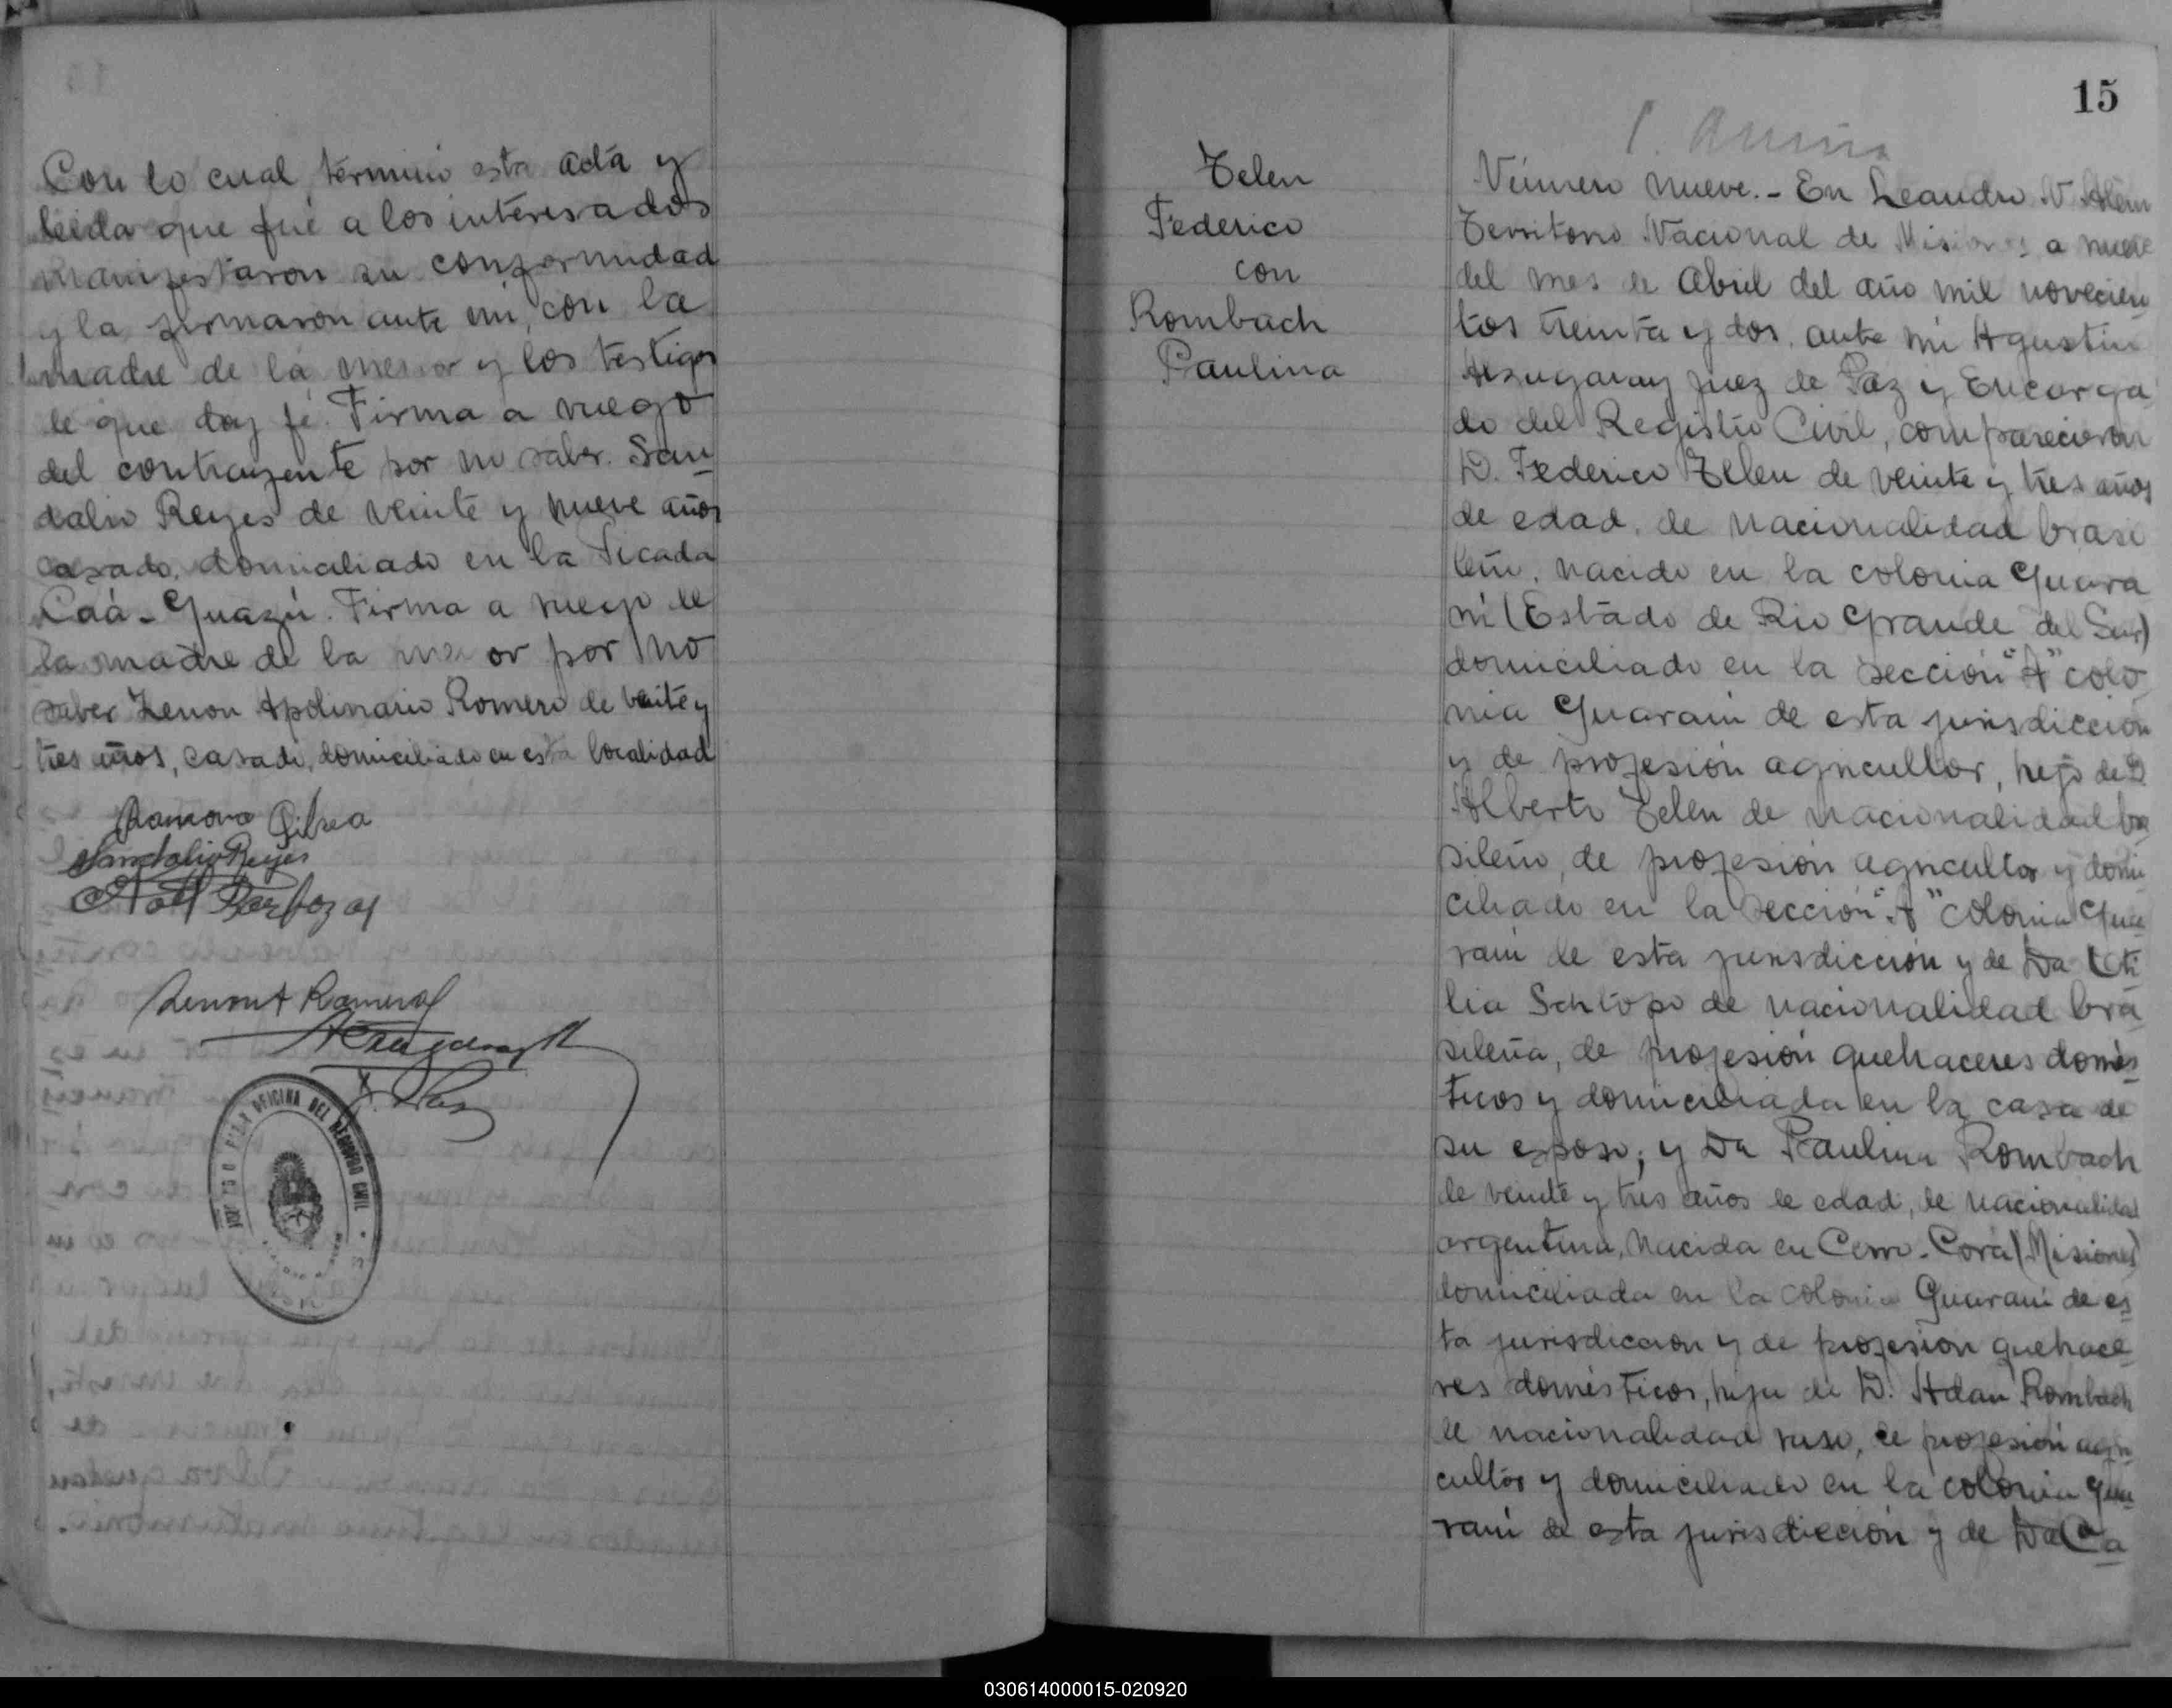 Con lo cual terminó esta acta y
leida que fué a los interesados
manifestaron su conformidad
y la firmaron ante mi, con la
madre de la menor y los testigos
de que doy fé. Firma a ruego
del contrayente por no saber. San
dalio Reyes de veinte y nueve años
casado, domiciliado en la Picada
Caá-Guazú. Firma a ruego de
la madre de la menor por no
saber Zenon Apolinario Romero de veinte y
tres años, casado, domiciliado en esta localidad
Ramona
Sandalio Reyes
Zenon A Romero
OFICINA DEL REGISTRO CIVIL
15
Telen
Federico
con
Rombach
Paulina
Número nueve.- En Leandro N. Alem
Territorio Nacional de Misiones a nueve
del mes de Abril del año mil novecien
tos treinta y dos, ante mi Agustin
juez de Paz y Encarga
do del Registro Civil, comparecieron
D. Federico Telen de veinte y tres años
de edad, de nacionalidad brasi
leño, nacido en la colonia Guara
ní (Estado de Rio Grande del Sur)
domiciliado en la sección "A" colo
nia Guaraní de esta jurisdicción
y de profesión agricultor, hijo de D.
Alberto Telen de nacionalidad bra
sileño, de profesión agricultor y domi
ciliado en la sección "A" colonia Gua
raní de esta jurisdicción y de Da
lia de nacionalidad bra
sileña, de profesión quehaceres domés
ticos y domiciliada en la casa de
su esposo; y Da Paulina Rombach
de veinte y tres años de edad, de nacionalidad
argentina, nacida en Cerro-Corá (Misiones)
domiciliada en la colonia Guaraní de es
ta jurisdiccion y de profesion quehace
res domésticos, hija de D. Adan Rombach
de nacionalidad ruso, de profesión agri
cultor y domiciliado en la colonia Gua
raní de esta jurisdicción y de Da Ca
030614000015-020920